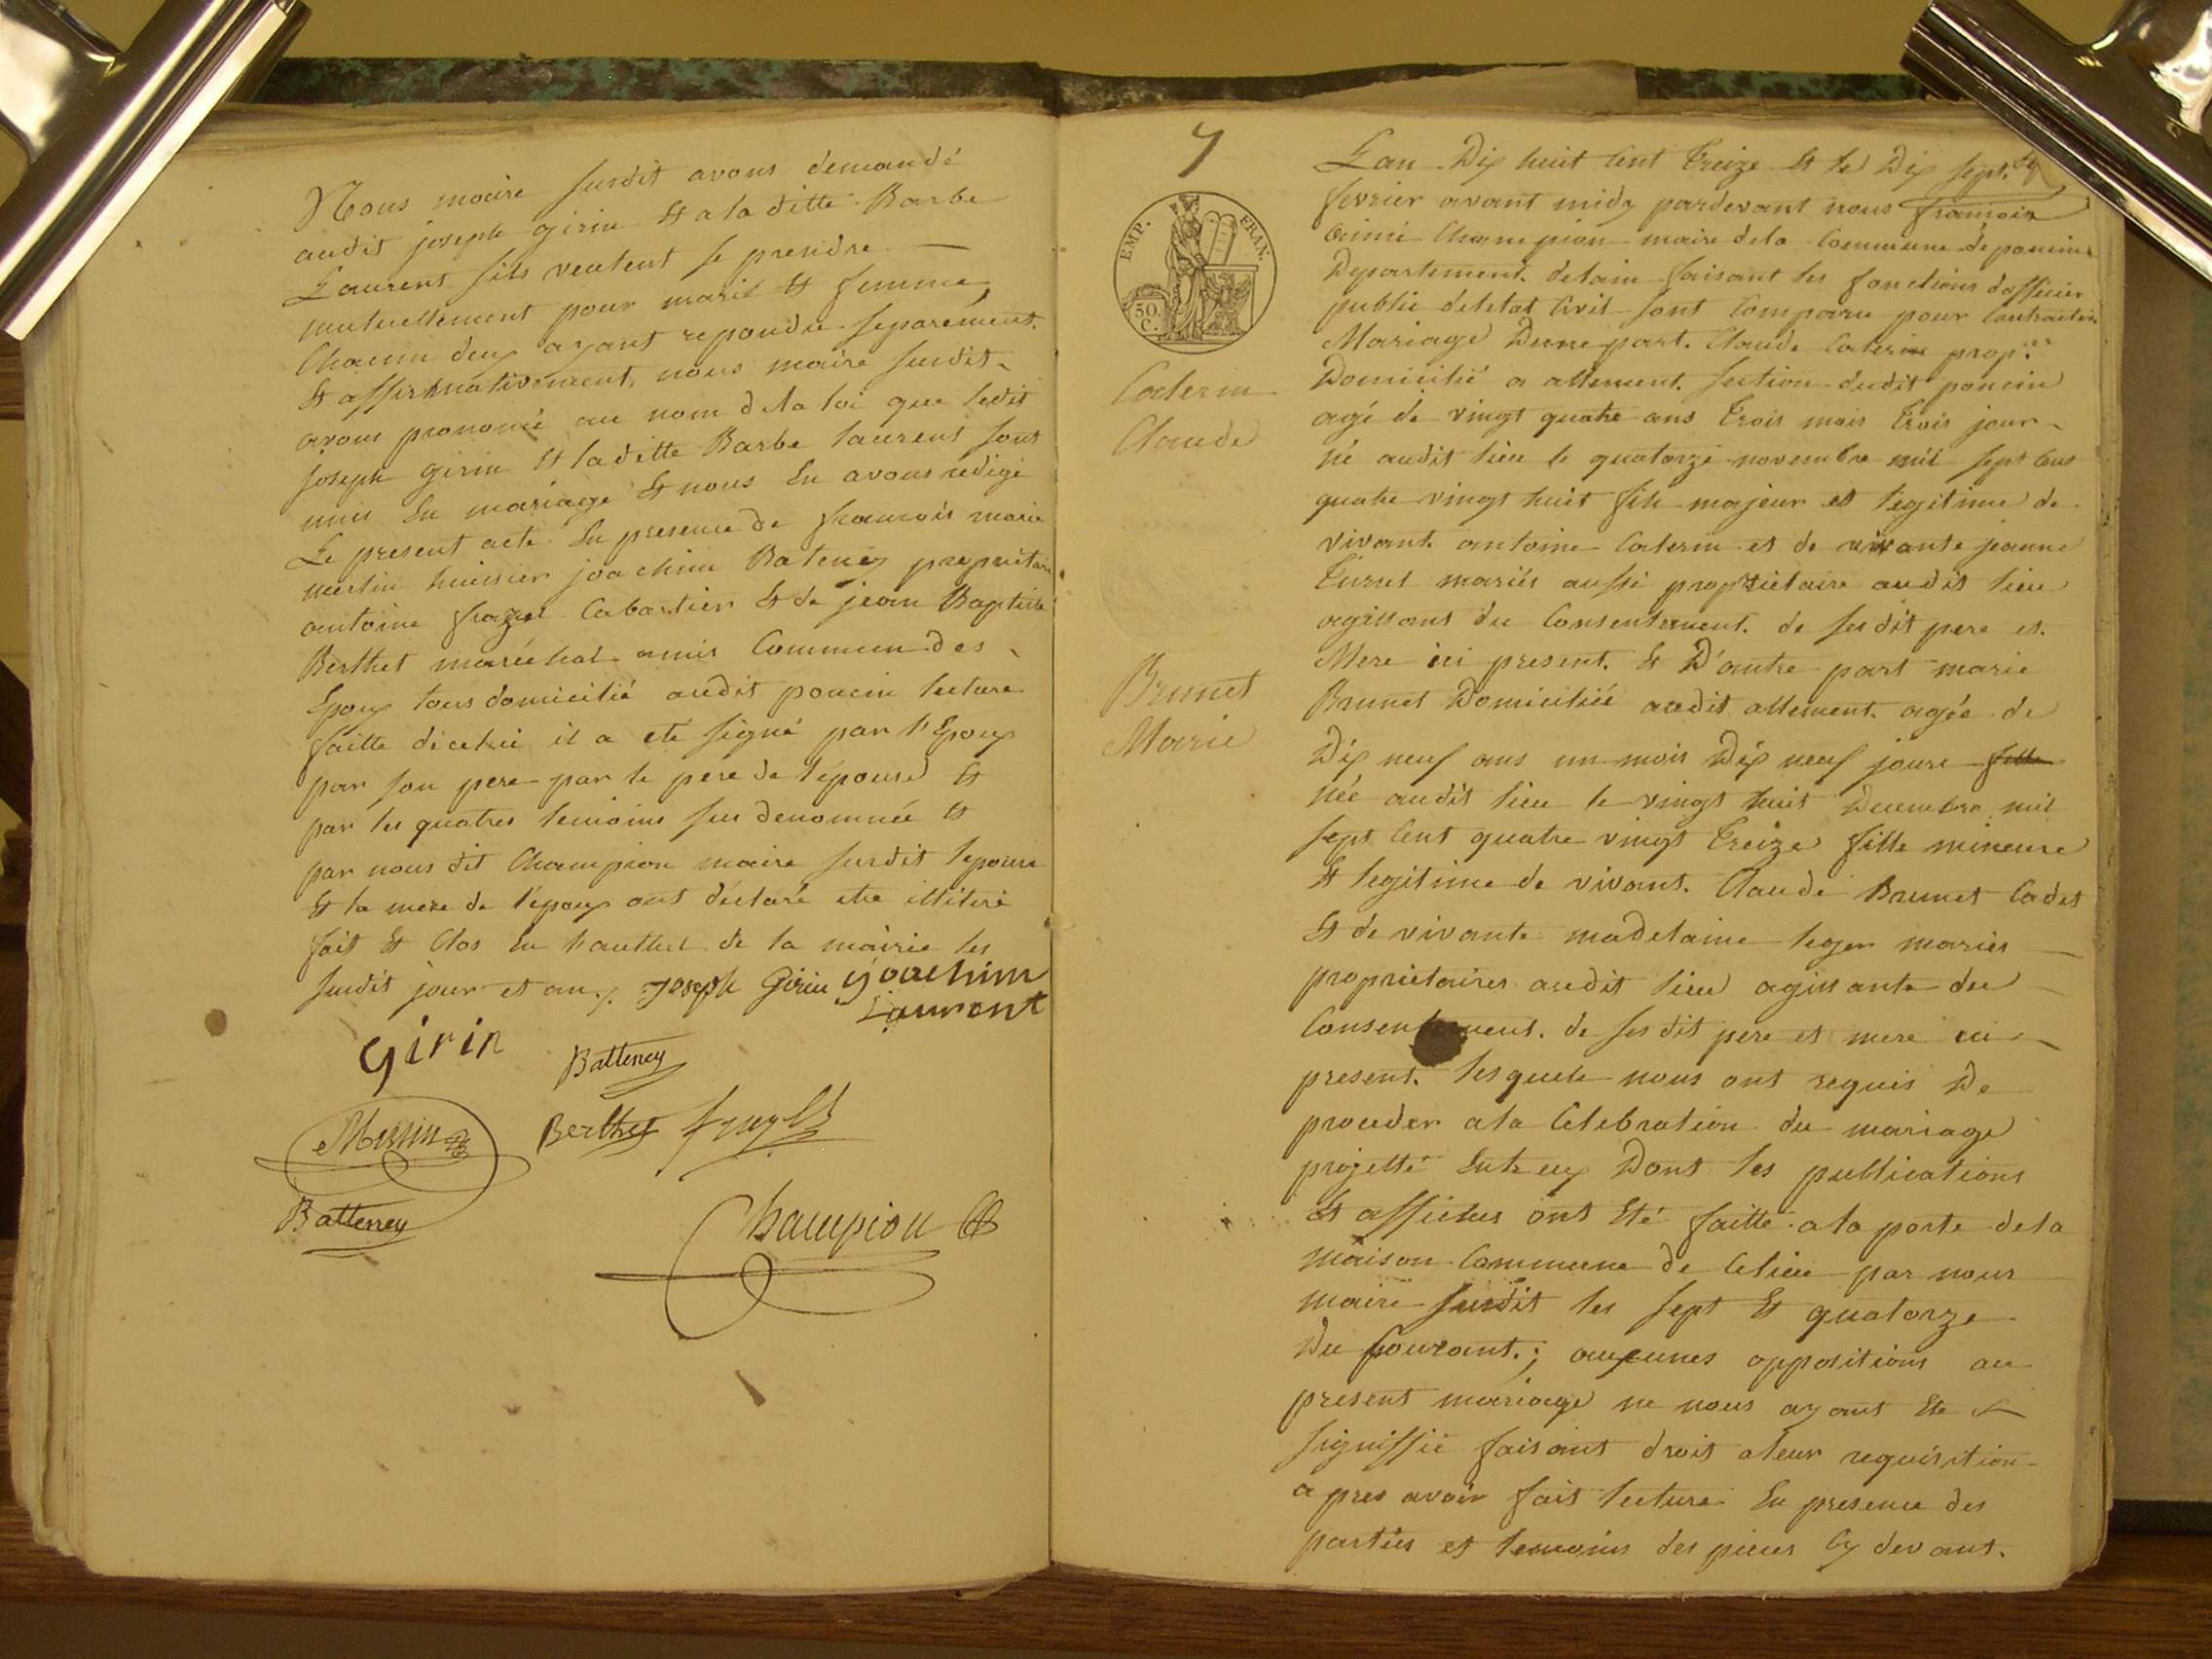 Nous maire susdit avons demandé
audit joseph girin Et a la ditte Barbe
Laurent sils veulent se prendre
mutuellement pour maris Et femme,
Chacun deux ayant repondu separément
Et affirmativement, nous maire susdit
avons prononcé au nom de la loi que ledit
joseph girin Et la ditte Barbe laurent sont
unis En mariage Et nous En avons redigé
Le present acte En presence de francois marie
huissier joachim Bateney propriétaire
antoine Cabartier Et de jean Baptiste
Berthet maréchal amis Commun des
Epoux tous domicilié audit poncin lecture
faitte dicelui il a eté signé par l'Epoux
par son pere par le pere de l'épouse Et
par les quatres temoins sus denommée Et
par nous dit Champion maire susdit l'epouse
Et la mere de l'époux ont déclaré etre illiteré
fait Et Clos En hauttel de la mairie les
susdit jour et an ./. Joseph Girin Joachim
Laurent
Girin
Batteney
Berthet
Batteney
Champion
7
EMP. FRAN.
50.
C.
Caterin
Claude
Brunet
Marie
Lan Dix huit Cent Treize Et le Dix sept
fevrier avant midy pardevant nous francois
aimé Champion maire de la Commune de poncin
Departement de lain faisant les fonctions dofficier
public de letat Civil sont Comparu pour Contracter
Mariage Dunepart. Claude Caterin prop.re
Domicilié a allement section dudit poncin
agé de vingt quatre ans trois mois trois jour
né audit lieu le quatorze novembre mil sept Cent
quatre vingt huit fils majeur et legitime de
vivant antoine Caterin et de vivante jeanne
mariés aussi proprietaire audit lieu
agissant du Consentement de ses dit pere et
Mere ici present. Et D'autre part marie
Brunet Domiciliée audit allement agée de
Dix neuf ans un mois Dix neuf jours fille
née audit lieu le vingt huit Decembre mil
sept Cent quatre vingt Treize fille mineure
Et legitime de vivant Claude Brunet Cadet
Et de vivante madelaine leger mariés
proprietaires audit lieu agissante du
Consentement de ses dit pere et mere ici
present lesquels nous ont requis De
proceder a la Celebration du mariage
projetté Entr eux Dont les publications
Et affiches ont Eté faitte a la porte de la
maison Commune de Celieu par nous
maire susdit les sept Et quatorze
Du Courant ; aucunes oppositions au
present mariage ne nous ayant Ete
signiffié faisant droit a leur requisition
apres avoir fait lecture En presence des
parties et temoins des pieces Cy devant